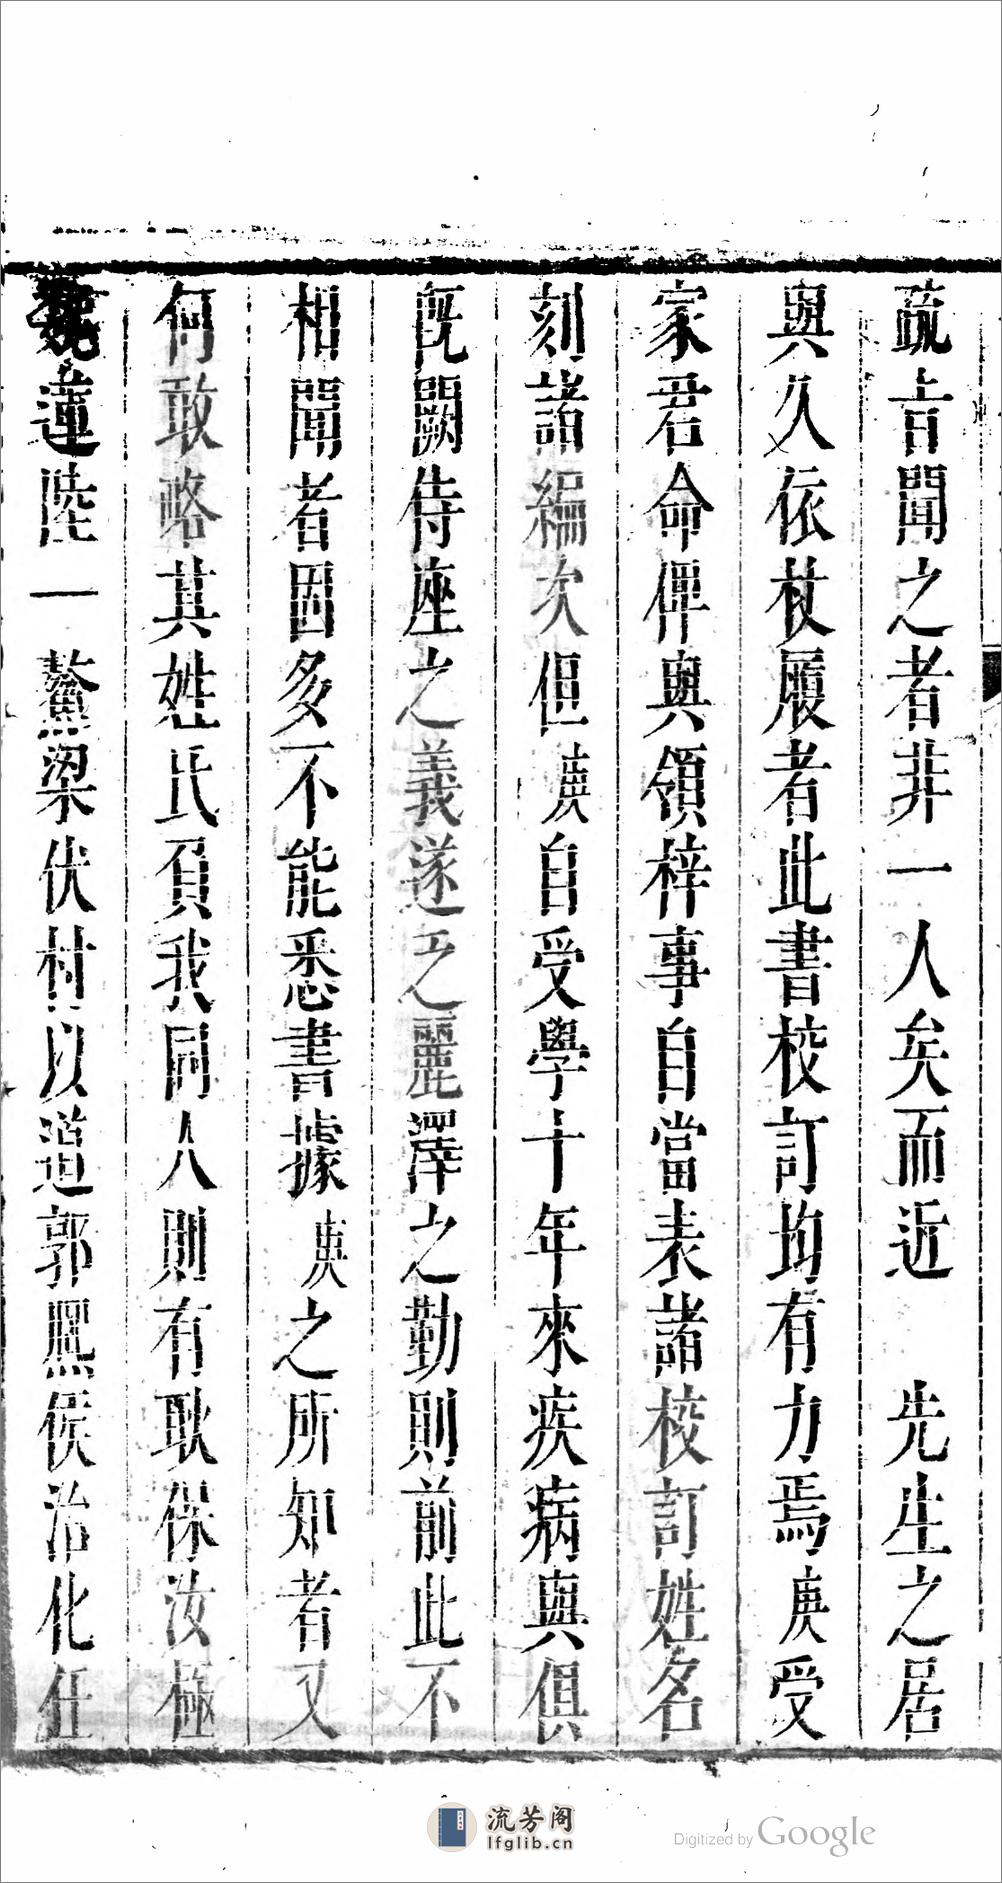 疏旨聞之者非一人矣而近　先生之居
與久依杖履者此書校訂均有力焉賡受
家君命俾與領梓事自當表諸校訂姓名
刻諸編次但賡自受學十年來疾病與俱
旣闕侍座之義遂乏麗澤之勤則前此不
相聞者固多不能悉書據賡之所知者又
何敢略其姓氏負我同人則有耿保汝極
魏蓮陸一鰲梁伏村以道郭熙侯治化任
流芳阁
lfglib.cn
Digitized by Google